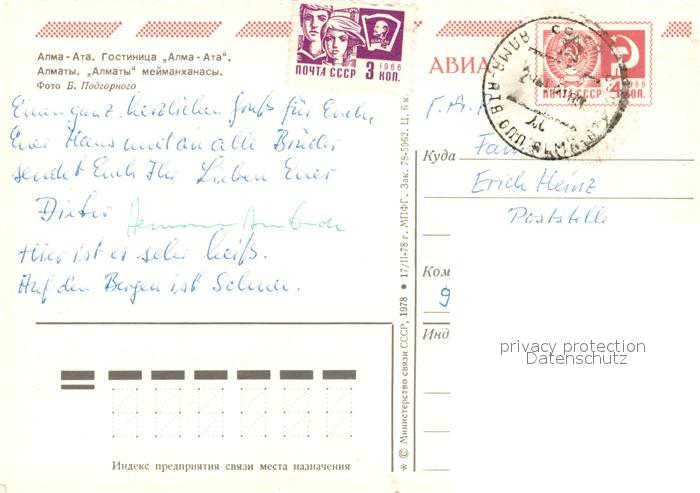 Алма-Ата. Гостиница „Алма-Ата“.
Алматы. „Алматы“ мейманханасы.
Фото Б. Подгорного
ПОЧТА СССР
1966
3 КОП.
АВИА
ПОЧТА СССР
1966
4 КОП.
СССР
АЛМА-АТА
Einen ganz herzlichen Gruß für Euch,
Euer Haus und an alle Brüder
sendet Euch Ihr Lieben Euer
Dieter
Hermann
Hier ist es sehr heiß.
Auf den Bergen ist Schnee.
Г. Д.
Куда
Fam
Erich Heinz
Poststelle
Ком
9
Инд
privacy protection
Datenschutz
Индекс предприятия связи места назначения
* © Министерство связи СССР, 1978 • 17/II-78 г. МПФГ. Зак. 78-5962. Ц. 6 к.